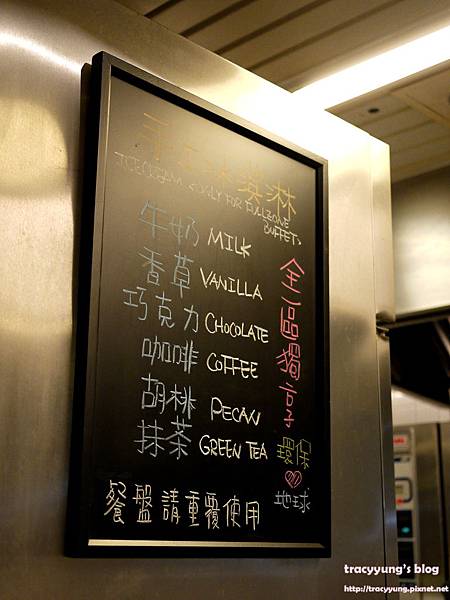 手工冰淇淋
ICECREAM ONLY FOR FULLZONE
BUFFET
牛奶 MILK
香草 VANILLA
巧克力 CHOCOLATE
咖啡 COFFEE
胡桃 PECAN
抹茶 GREEN TEA
全區獨享
環保
地球
餐盤請重覆使用
tracyyung's blog
http://tracyyung.pixnet.net